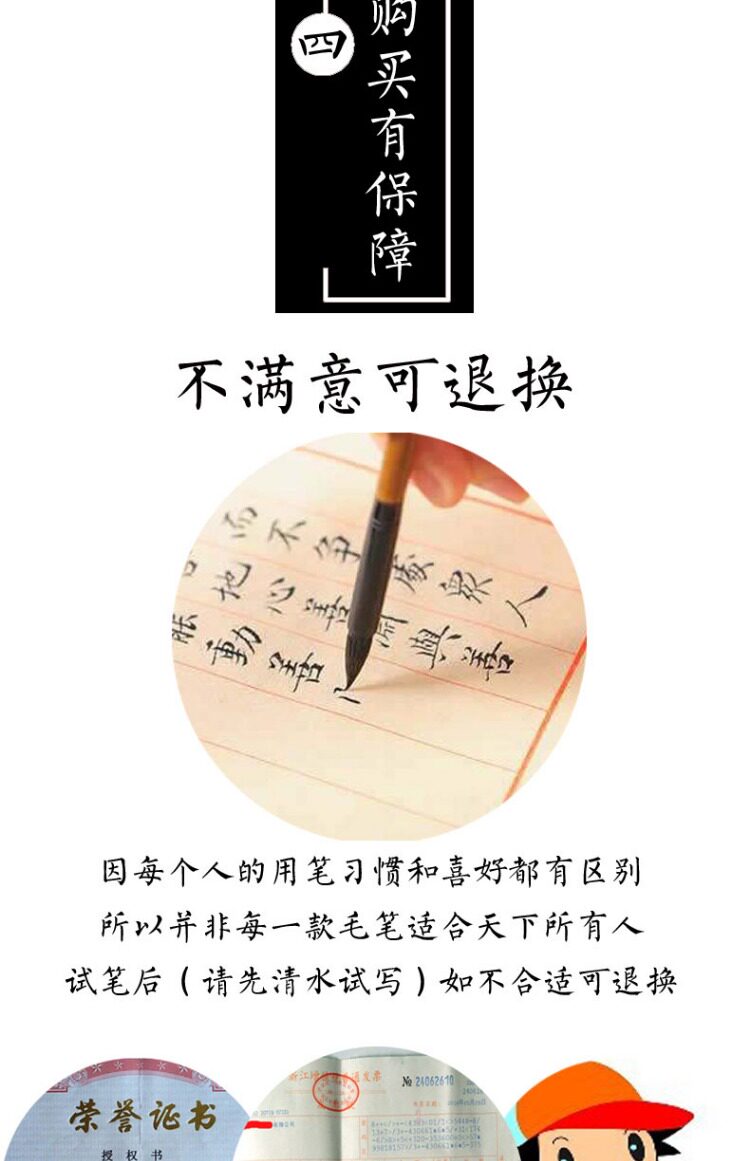 四
购买有保障
不满意可退换
而不争處衆人
地心善淵與善
動善
因每个人的用笔习惯和喜好都有区别
所以并非每一款毛笔适合天下所有人
试笔后（请先清水试写）如不合适可退换
荣誉证书
授权书
№ 24062610